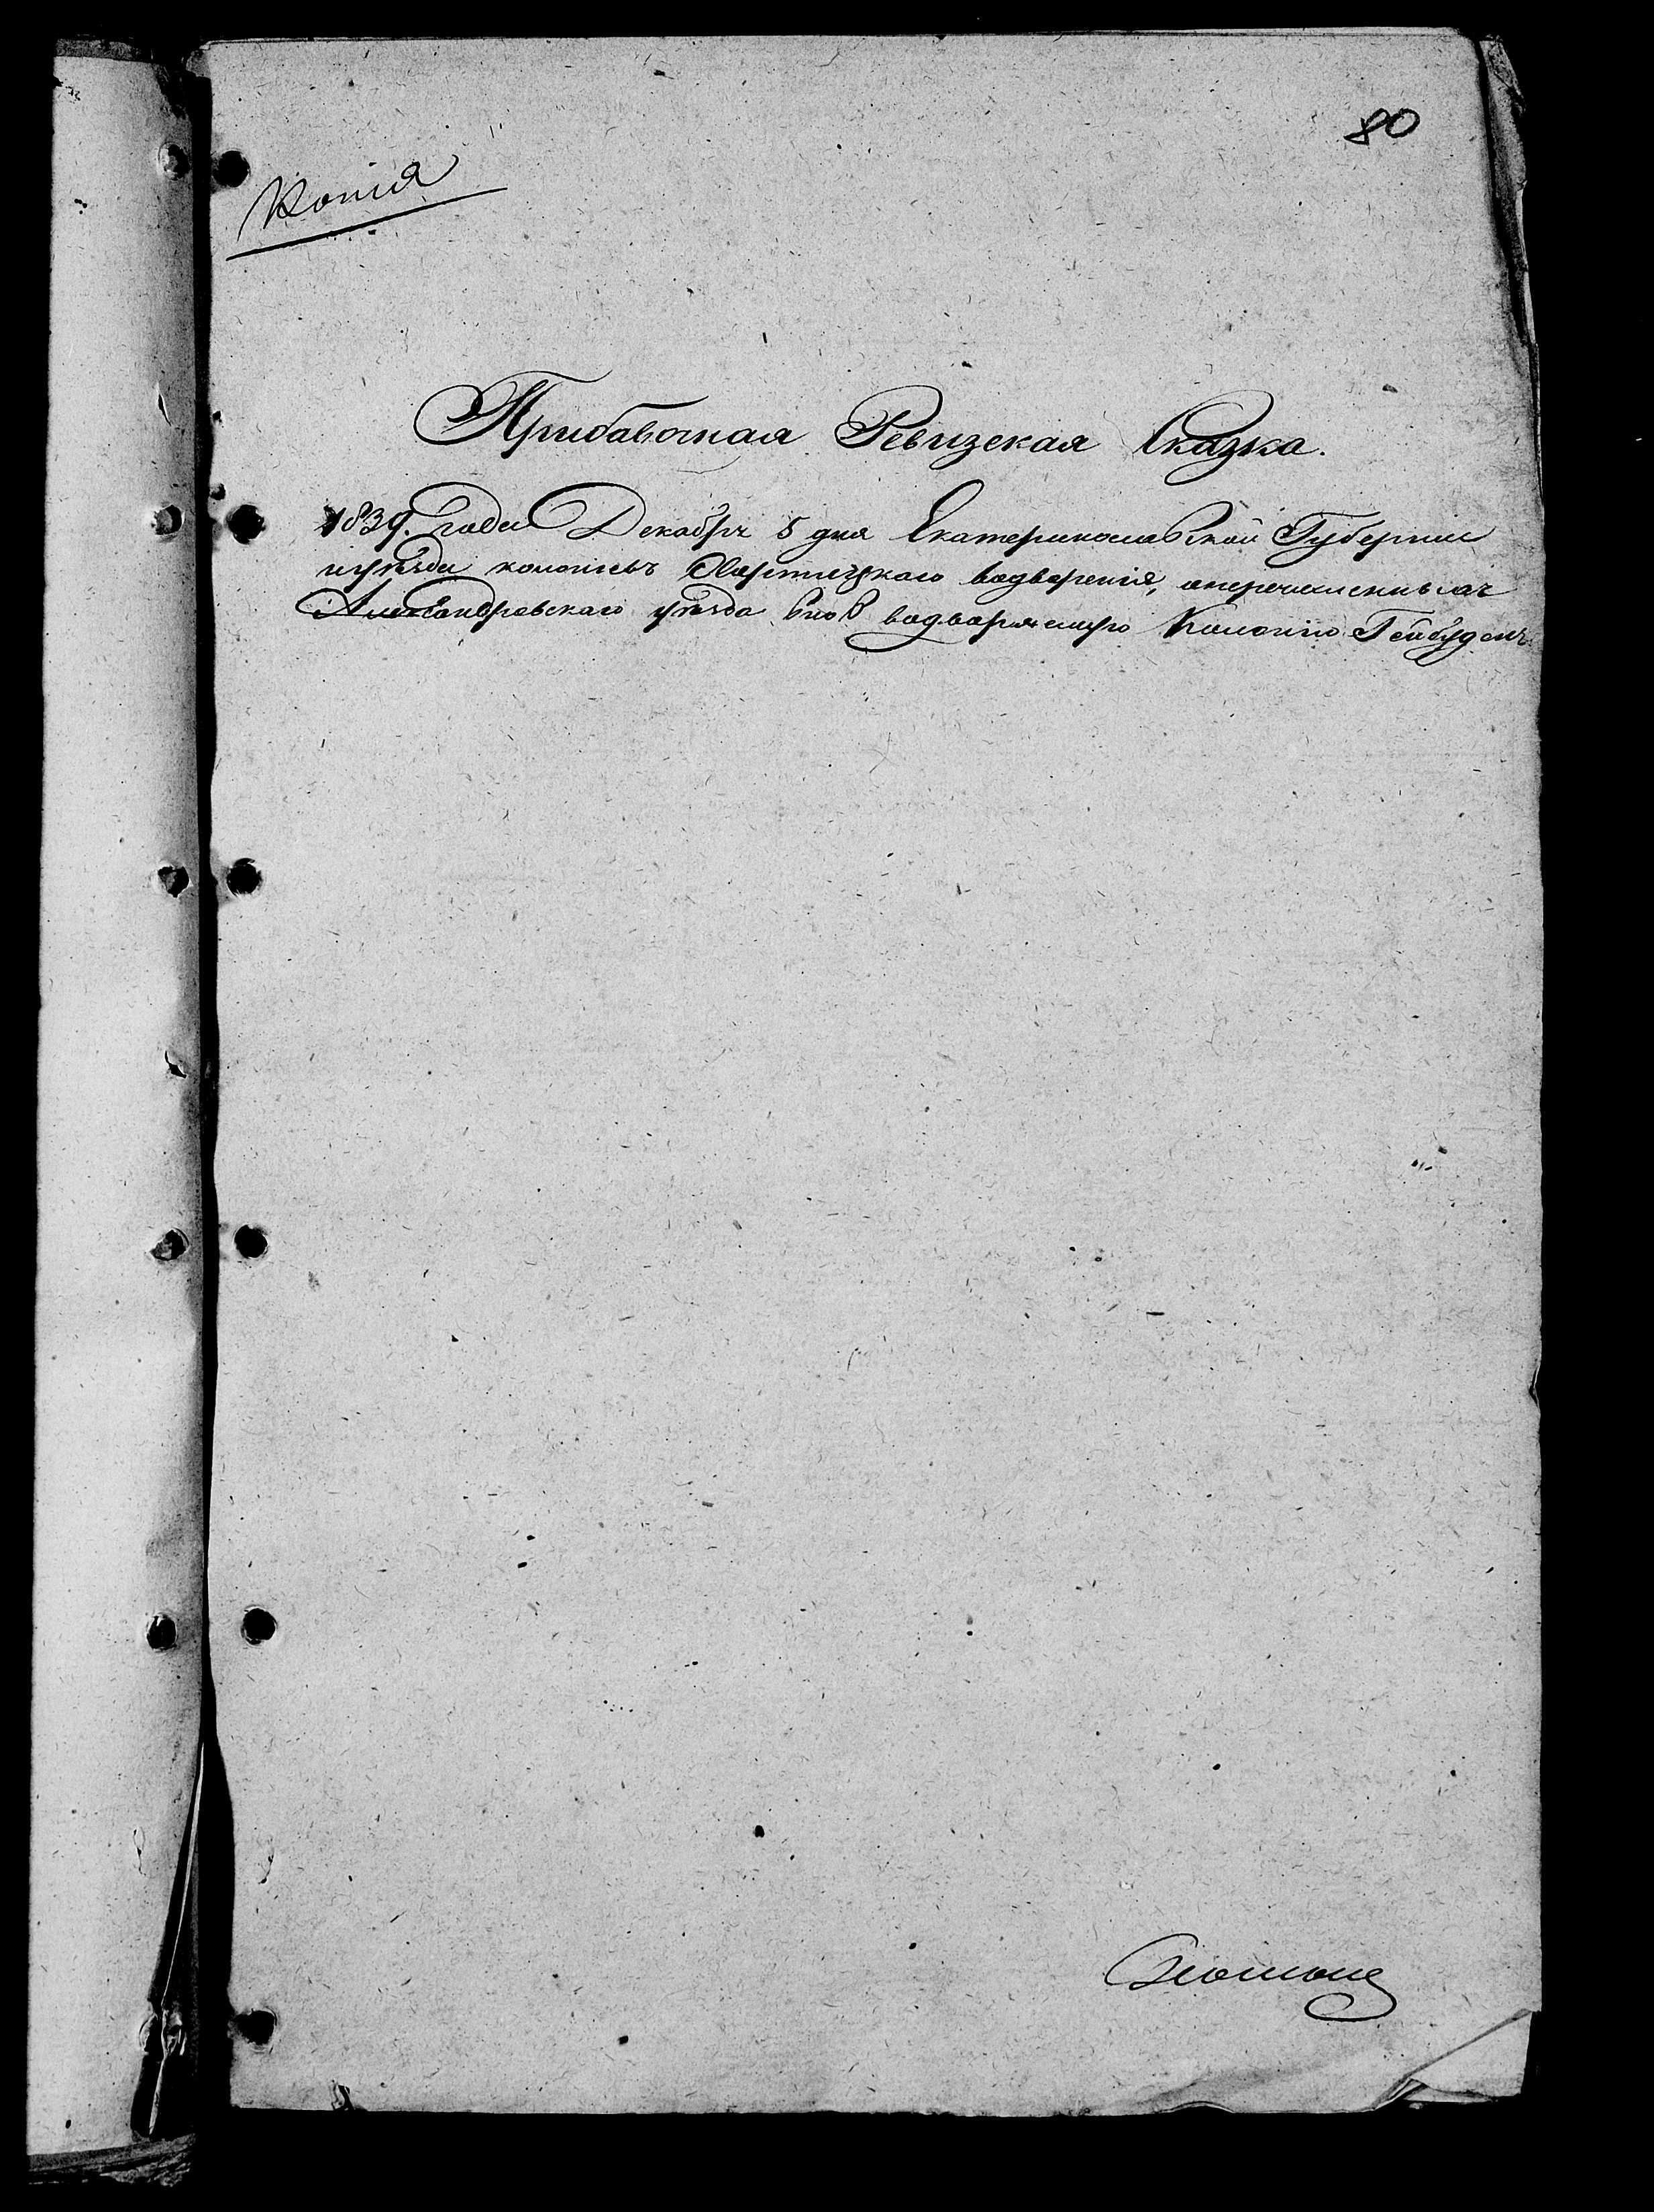 80
Копія
Прибавочная Ревизская Сказка.
1839. года Декабря 5 дня Екатеринославской Губерніи
и уѣзда колоніевъ Хортицкаго водворенія, о перечисленныхъ
Александровскаго уѣзда вновь водворяемую Колонію Гейбуденъ